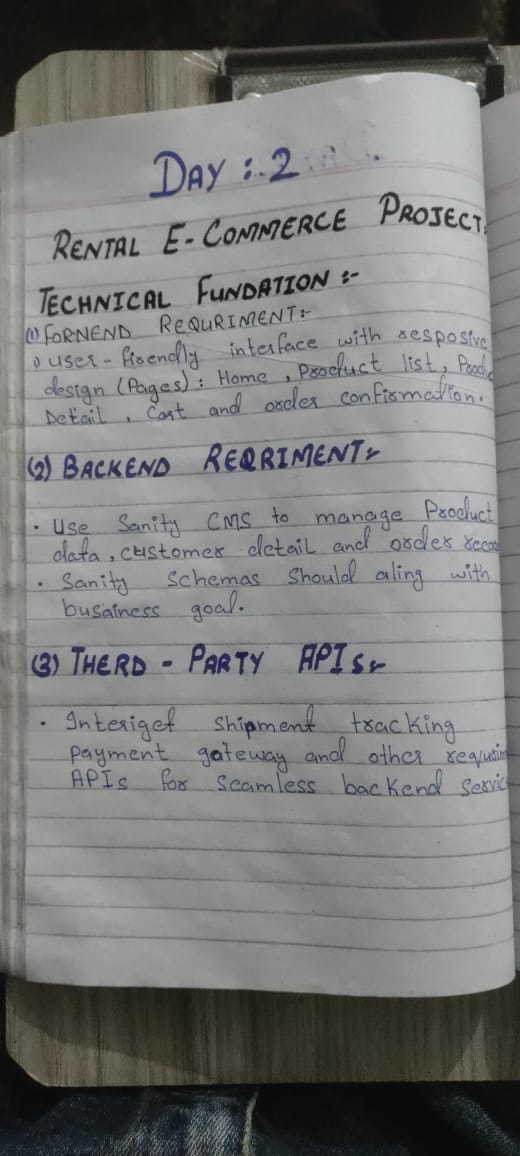 DAY : 2
RENTAL E-COMMERCE PROJECT:
TECHNICAL FUNDATION :-
(1) FORNEND REQURIMENT:-
user-friendly interface with resposive
design (Pages) : Home , Product list, Produ
Detail , Cart and order confirmation.
(2) BACKEND REQRIMENT:-
• Use Sanity CMS to manage Product
data, customer detail and order reco
• Sanity Schemas Should aling with
busainess goal.
(3) THERD - PARTY APIs:-
• Interiget shipment tracking
payment gateway and other
APIs for seamless backend Servic